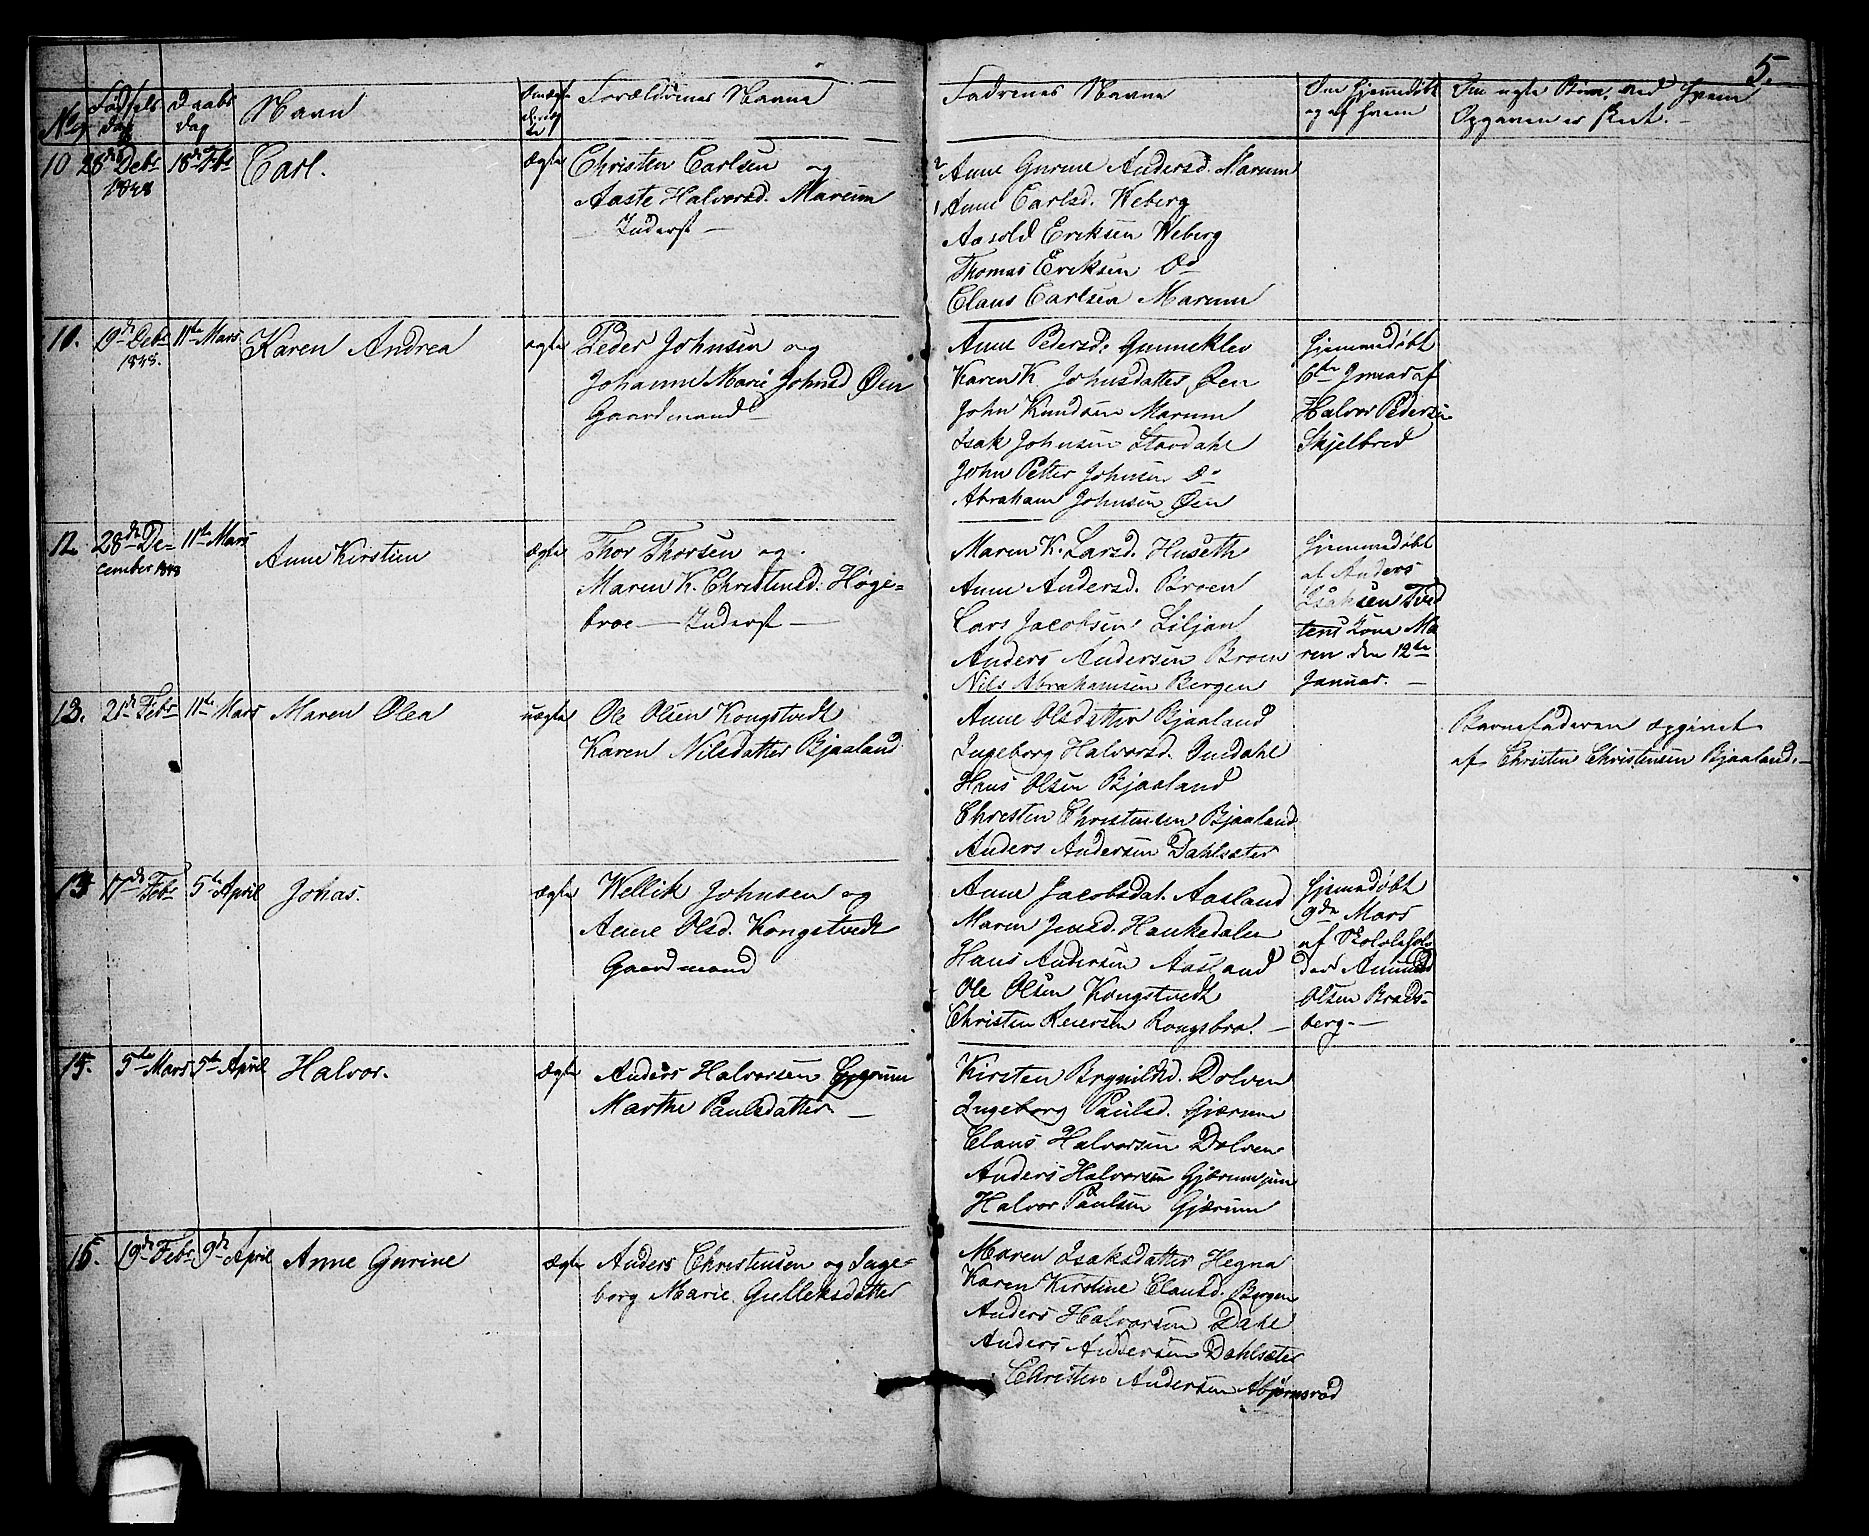 5.
No
Fødsels dag
Daabs dag
Navn
Forældrenes Navne
Fadrenes Navne
Om hjemmedøbt
og af hvem
Om uægte Børn, ved hvem
Opgaven er skeet.
10
28de Debr
1848
18de Fbr
Carl.
ægte
Christen Carlsen og
Aaste Halvorsd. Marum
Inderst
2 Anne Gurine Andersd. Marum
1 Anne Carlsd. Weberg
Aasold Eriksen Weberg
Thomas Eriksen Do
Claus Carlsen Marum
10.
19de Debr
1848.
11te Mars
Karen Andrea
ægte
Peder Johnsen og
Johanne Marie Johnsd Øen
Gaardmand
Anne Pedersd. Gunneklev
Karen K. Johnsdatter Øen
John Knudsen Marum
Isak Johnsen Stordahl
John Petter Johnsen Do
Abraham Johnsen Øen
Hjemmedøbt
6te Januar af
Halvor Pedersen
Skjelbred
12.
28de De-
cember 1848
11te Mars
Anne Kirstine
ægte
Thor Thorsen og
Maren K. Christensd. Høge-
broe — Inderst —
Maren K. Larsd. Huseth
Anne Andersd. Broen
Lars Jacobsen Liljan
Anders Andersen Broen
Nils Abrahamsen Bergen
Hjemmedøbt
af Anders
Isaksen Tved
tens Kone Ma
ren den 12te
Januar. —
13.
21de Febr
11te Mars
Maren Olea
uægte
Ole Olsen Kongstvedt
Karen Nilsdatter Bjaaland
Anne Olsdatter Bjaaland
Ingeborg Halvorsd. Omdahl
Hans Olsen Bjaaland
Christen Christensen Bjaaland
Anders Andersen Dahlsæter
Barnefaderen opgivet
af Christen Christensen Bjaaland. —
13
17de Febr
5te April
Johas.
ægte
Wellik Johnsen og
Anne Olsd. Kongstvedt
Gaardmand
Anne Jacobsdat. Aasland
Maren Jensd. Haukedalen
Hans Andersen Aasland
Ole Olsen Kongstvedt
Christen Reiersen Kongsbro. —
Hjemmedøbt
9de Mars
af Skolehol-
der Amund
Olsen Brads-
berg. —
15.
5te Mars
5te April
Halvor.
ægte
Anders Halvorsen Gjærum
Marthe Paulsdatter —
Kirsten Brynilds. Dolven
Ingeborg Paulsd. Gjærum
Claus Halvorsen Dolven
Anders Halvorsen Gjærum jun
Halvor Paulsen Gjærum
16.
19de Febr
9de April
Anne Gurine
ægte
Anders Christensen og Inge-
borg Marie Gulleksdatter
Maren Isaksdatter Hegna
Karen Kirstine Clausd. Bergen
Anders Halvorsen Dahl
Anders Andersen Dahlsæter
Christen Andersen Abjørnsrød